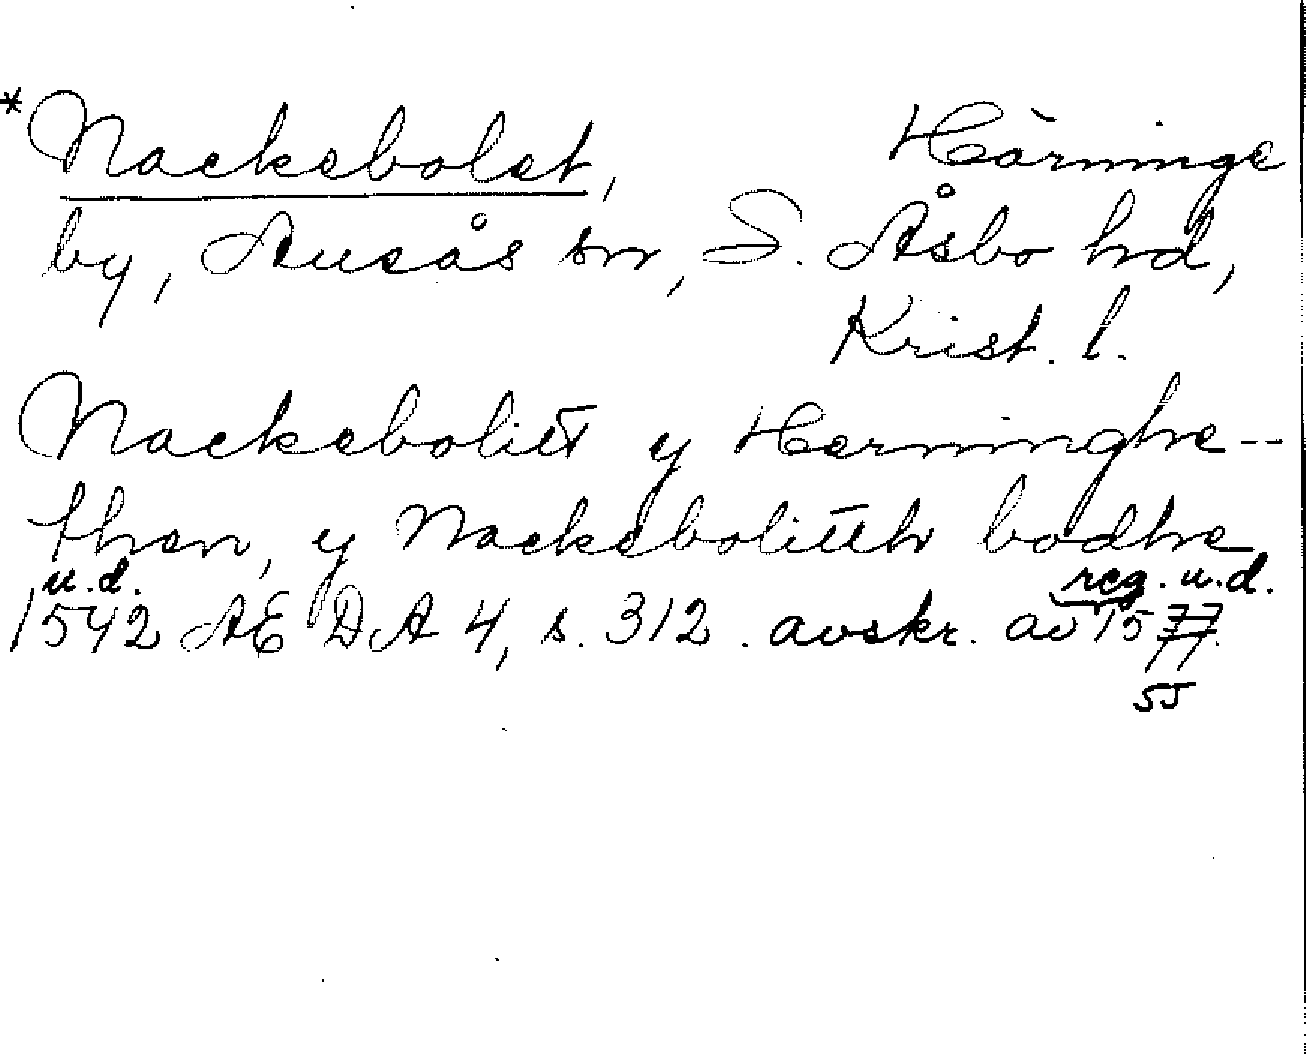 *Nackebolet, Härninge
by, Ausås sn, S. Åsbo hd,
Krist. l.
Nackebolitt y Herninghe--
then, y Nackebolitth bodhe
u.d. reg. u.d.
1542 AEDA 4, s. 312. avskr. av 1577.
55